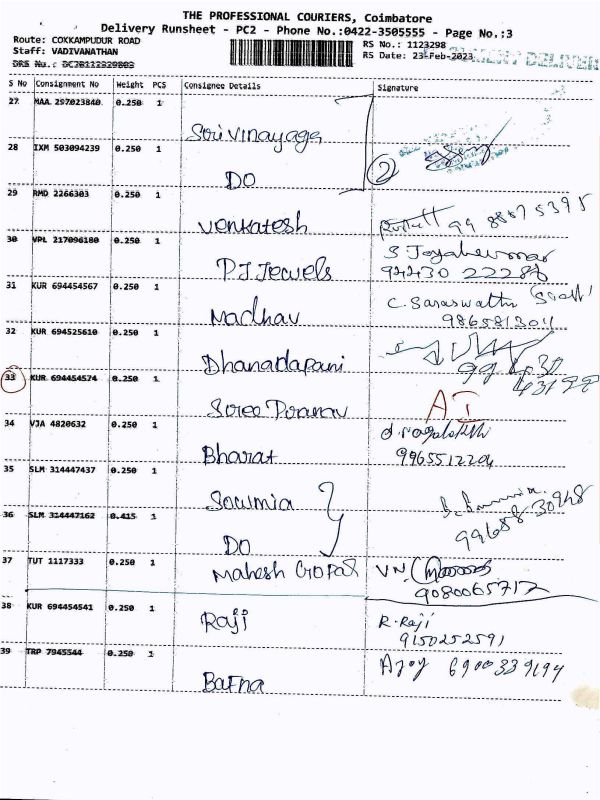 THE PROFESSIONAL COURIERS, Coimbatore
Delivery Runsheet - PC2 - Phone No.:0422-3505555 - Page No.:3
Route: COKKAMPUDUR ROAD
RS No.: 1123298
Staff: VADIVANATHAN
RS Date: 23-Feb-2023
DELIVER
S No Consignment No Weight PCS Consignee Details Signature
27 MAA 297023840 0.250 1
Sri vinayaga
28 IXM 503094239 0.250 1
DO
2
29 RMD 2266303 0.250 1
venkatesh
99 88675395
30 VPL 217096180 0.250 1
PJ Jewels
S Jayakumar
94430 22286
31 KUR 694454567 0.250 1
Madhav
C. Saraswathi
986581304
32 KUR 694525610 0.250 1
Dhanadapani
33 KUR 694454574 0.250 1
Sree Pranav
34 VJA 4820632 0.250 1
Bharat
9965512204
35 SLM 314447437 0.250 1
Sowmia
36 SLM 314447162 0.415 1
DO
99688 30948
37 TUT 1117333 0.250 1
Mahesh Gopal
VN.
9080065717
38 KUR 694454541 0.250 1
Raji
R. Raji
9150252591
39 TRP 7945544 0.250 1
Bafna
Ajoy 6900339194